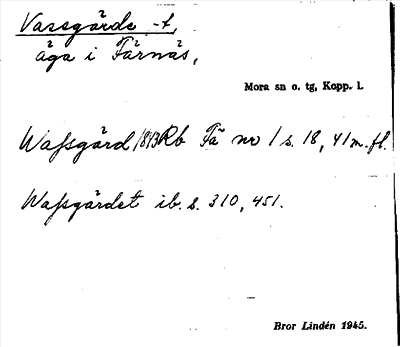 Vassgärde -t,
äga i Färnäs,
Mora sn o. tg, Kopp. l.
Wassgärd 1813 Rb Fä nr 1 s. 18, 41 m. fl.
Wassgärdet ib. s. 310, 451.
Bror Lindén 1945.